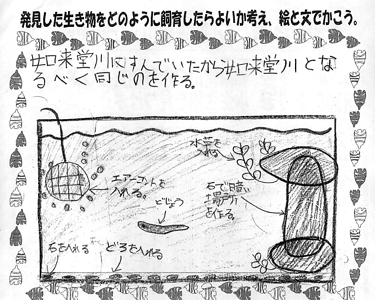 発見した生き物をどのように飼育したらよいか考え、絵と文でかこう。
如来堂川にすんでいたから如来堂川とな
るべく同じのを作る。
水草を
入れる
エアーコントを
入れる。
どじょう
石で暗い
場所
を作る。
石を入れる
どろを入れる